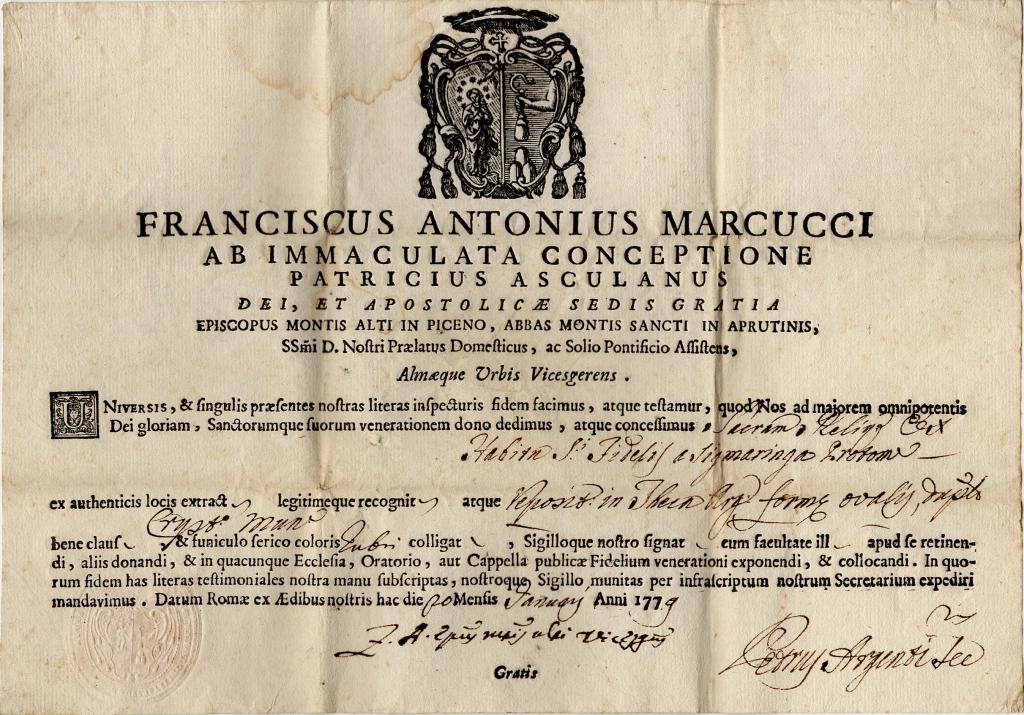 FRANCISCUS ANTONIUS MARCUCCI
AB IMMACULATA CONCEPTIONE
PATRICIUS ASCULANUS
DEI, ET APOSTOLICÆ SEDIS GRATIA
EPISCOPUS MONTIS ALTI IN PICENO, ABBAS MONTIS SANCTI IN APRUTINIS,
SSm̃i D. Nostri Prælatus Domesticus, ac Solio Pontificio Assistens,
Almæque Urbis Vicesgerens.
UNIVERSIS, & singulis præsentes nostras literas inspecturis fidem facimus, atque testamur, quod Nos ad majorem omnipotentis
Dei gloriam, Sanctorumque suorum venerationem dono dedimus, atque concessimus Sacram Reliq Ex
Habitu S. Fidelis a Sigmaringa Protom
ex authenticis locis extract legitimeque recognit atque reposit. in Theca Arg. formæ ovalis, dupl
Cryst. mun
bene claus & funiculo serico coloris Rubri colligat, Sigilloque nostro signat eum facultate ill apud se retinen-
di, aliis donandi, & in quacunque Ecclesia, Oratorio, aut Cappella publicæ Fidelium venerationi exponendi, & collocandi. In quo-
rum fidem has literas testimoniales nostra manu subscriptas, nostroque Sigillo munitas per infrascriptum nostrum Secretarium expediri
mandavimus. Datum Romæ ex Ædibus nostris hac die 20 Mensis Januarij Anni 1779
F. A.
Petrus Argenti Sec
Gratis